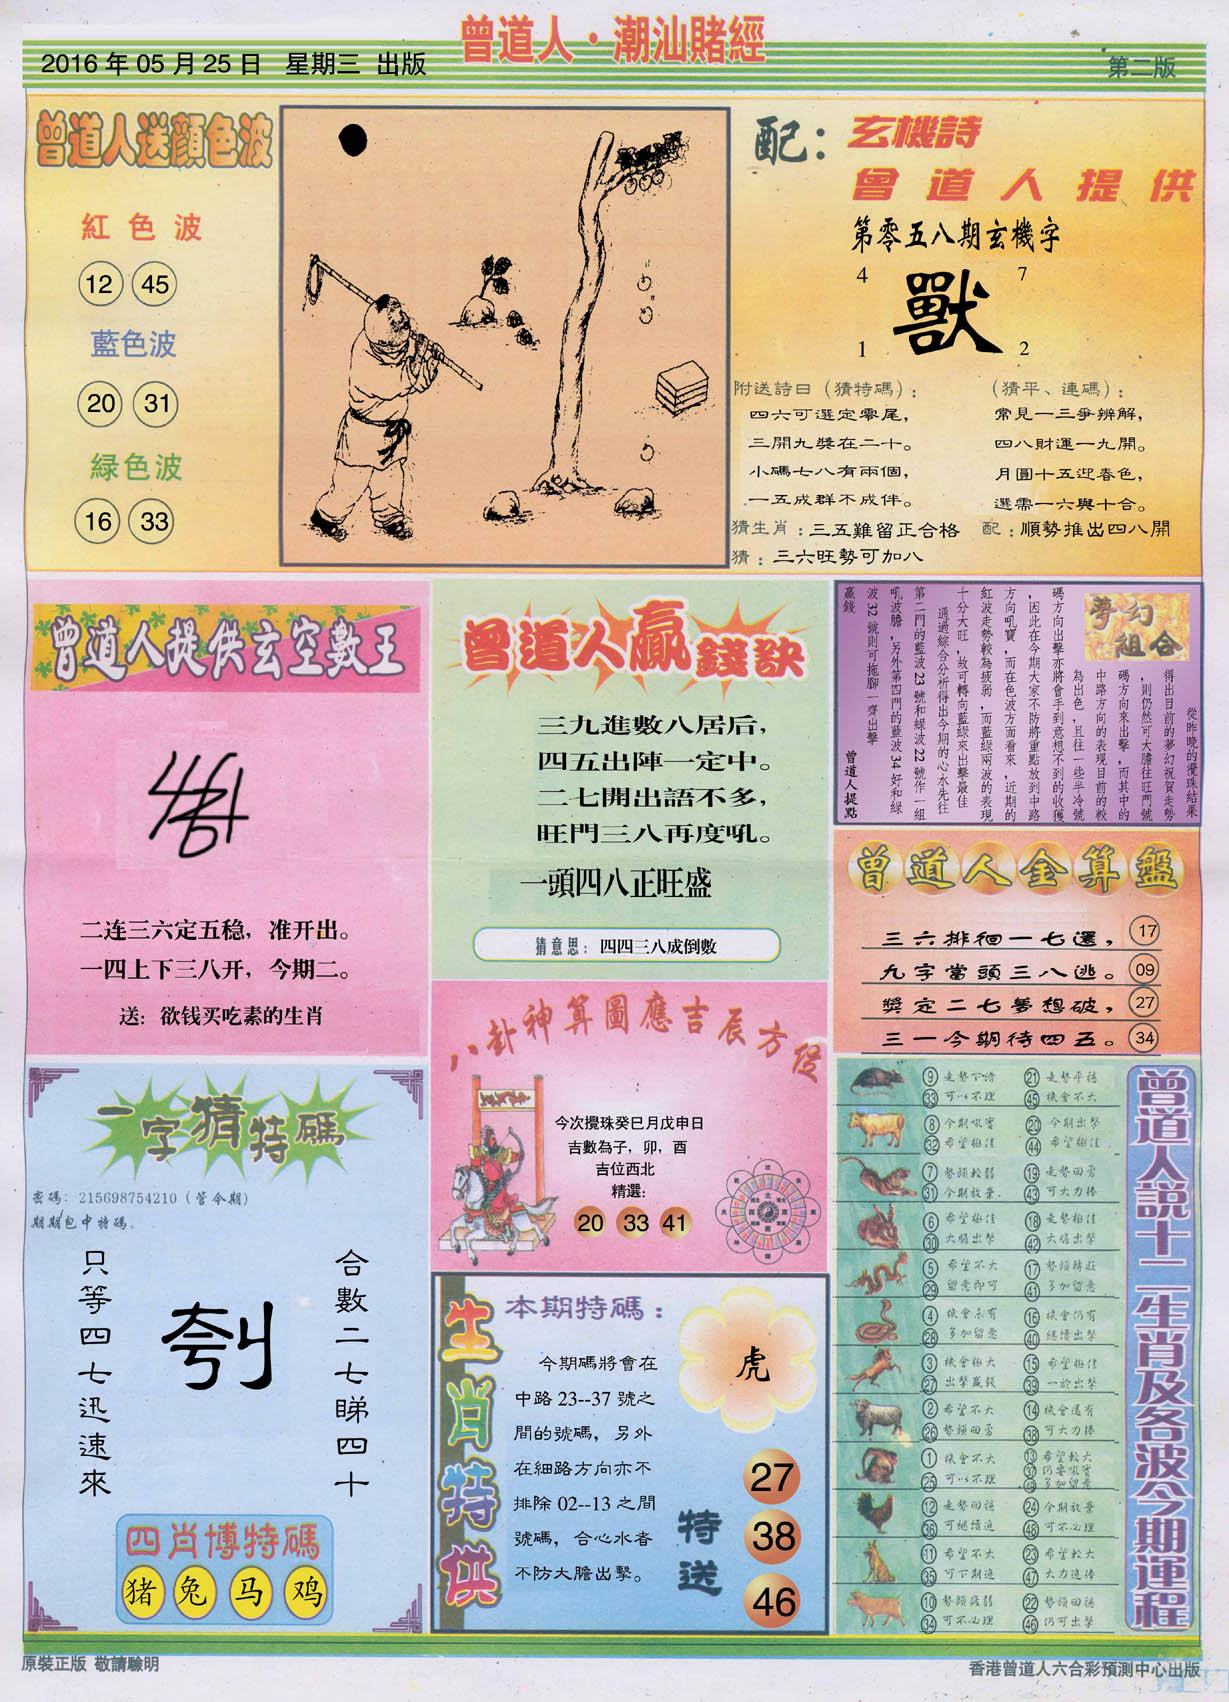 曾道人·潮汕賭經
2016 年 05 月 25 日 星期三 出版
第二版
曾道人送顏色波
紅色波
12 45
藍色波
20 31
緑色波
16 33
配：玄機詩
曾道人提供
第零五八期玄機字
4 7
獸
1 2
附送詩曰（猜特碼）：
四六可選定零尾，
三開九獎在二十。
小碼七八有兩個，
一五成群不成伴。
（猜平、連碼）：
常見一三爭辨解，
四八財運一九開。
月圓十五迎春色，
選需一六與十合。
猜生肖：三五難留正合格
配：順勢推出四八開
猜：三六旺勢可加八
曾道人提供玄空數王
二连三六定五稳，准开出。
一四上下三八开，今期二。
送：欲钱买吃素的生肖
曾道人贏錢訣
三九進數八居后，
四五出陣一定中。
二七開出語不多，
旺門三八再度吼。
一頭四八正旺盛
猜意思：四四三八成倒數
夢幻組合
從昨晚的攪珠結果
得出目前的夢幻祝賀走勢
，則仍然可大膽往旺門號
碼方向來出擊，而其中的
中路方向的表現目前的較
為出色，且往一些半冷號
碼方向出擊亦將會手到意想不到的收獲
，因此在今期大家不防將重點放到中路
方向吼寶，而在色波方面看來，近期的
紅波走勢較為疲弱，而藍綠兩波的表現
十分大旺，故可轉向藍綠來出擊最佳
通過綜合分析得出今期的心水先往
第二門的藍波 23 號和綠波 22 號作一組
吼波膽，另外第四門的藍波 34 好和綠
波 32 號則可拖腳一齊出擊
贏錢
曾道人提點
曾道人金算盤
三六排徊一七選， 17
九字當頭三八逃。 09
獎定二七夢想破， 27
三一今期待四五。 34
一字猜特碼
密碼：215698754210（管今期）
期期包中特碼。
合數二七睇四十
只等四七迅速來
四肖博特碼
猪 兔 马 鸡
八卦神算圖應吉辰方位
今次攪珠癸巳月戊申日
吉數為子，卯，酉
吉位西北
精選：
20 33 41
生肖特供
本期特碼：
今期碼將會在
中路 23--37 號之
間的號碼，另外
在細路方向亦不
排除 02--13 之間
號碼，合心水者
不防大膽出擊。
虎
特送
27
38
46
曾道人說十二生肖及各波今期運程
9 走勢下滑 21 走勢平穩
33 可以不理 45 機會不大
8 今期吼寶 20 今期出擊
32 希望極佳 44 希望極佳
7 勢頭較弱 19 走勢回勇
31 今期放棄. 43 可大力捧
6 希望極佳 18 走勢極佳
30 大膽出擊 42 大膽出擊
5 希望不大 17 勢頭轉旺
29 留意即可 41 多加留意
4 機會未有 16 機會仍有
28 多加留意 40 繼續出擊
3 機會極大 15 希望極佳
27 出擊贏錢 39 一於出擊
2 希望不大 14 機會還有
26 勢頭回勇 38 可大力捧
1 機會不大 13 希望較大
37 仍要吼寶
25 可以不理 49 多加留意
12 走勢回穩 24 今期放棄
36 可繼續追 48 可不必理
11 希望不大 23 希望較大
35 可下期追 47 大力追捧
10 勢頭疲弱 22 勢頭回穩
34 可不必理 46 仍可出擊
原裝正版 敬請驗明
香港曾道人六合彩預測中心出版